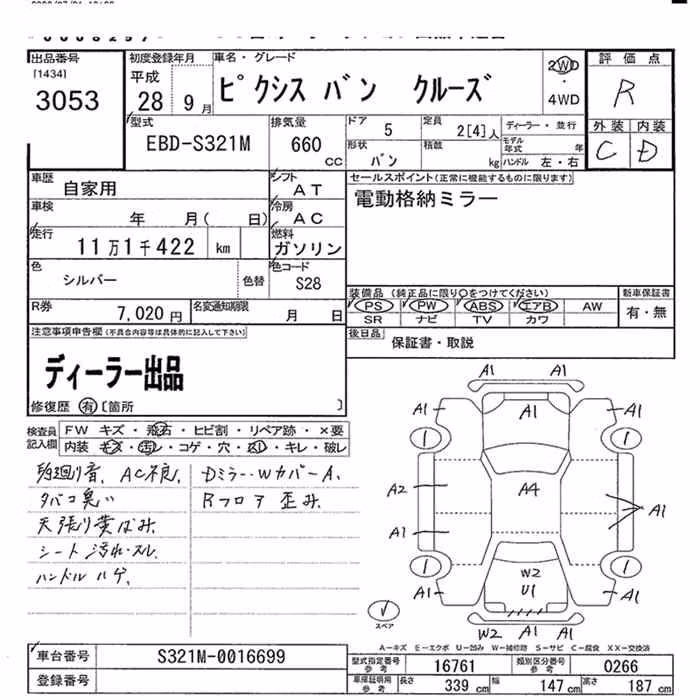 出品番号
[1434]
3053
初度登録年月
平成
28年 9月
車名・グレード
ピクシス バン クルーズ
2WD
・
4WD
評価点
R
外装 内装
C D
型式
EBD-S321M
排気量
660
CC
ドア
5
定員
2[4]人
形状
バン
積数
kg
ディーラー・並行
モデル年式 年
ハンドル 左・右
車歴
自家用
シフト
AT
車検
年 月( 日)
冷房
AC
走行
11万1千422 km
燃料
ガソリン
色
シルバー
色替
色コード
S28
R券
7,020円
名変通知期限
月 日
セールスポイント(正常に機能するものに限ります)
電動格納ミラー
装備品(純正品に限り○をつけてください)
PS PW ABS エアB AW
SR ナビ TV カワ
新車保証書
有・無
後日品
保証書・取説
注意事項申告欄(不具合内容等は具体的に記入して下さい)
ディーラー出品
修復歴 有 〔箇所 〕
検査員
記入欄
FW キズ・飛石・ヒビ割・リペア跡・×要
内装 キズ・汚レ・コゲ・穴・凹・キレ・破レ
AC不良、
タバコ臭い
天張り黄ばみ
シート汚れ・スレ
ハンドルハゲ、
Dミラー・WカバーA、
Rフロア歪み
A1 A1
A1 A1 A1
1 1
A2 A4 A1
A1
1 1
W2
U1
A1 A1
W2 A1 A1
スペア
A-キズ E-エクボ U-凹み W-補修跡 S-サビ C-腐食 XX-交換済
車台番号
S321M-0016699
登録番号
型式指定番号
参考
16761
類別区分番号
参考
0266
車庫証明用
参考
長さ 339cm 幅 147cm 高さ 187cm